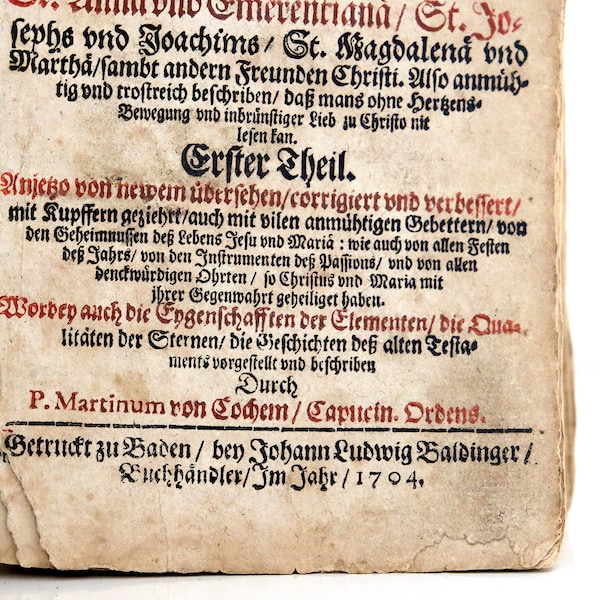 St. Anna vnd Emerentiana/ St. Jo-
sephs vnd Joachims/ St. Magdalenâ vnd
Marthâ/sambt andern Freunden Christi. Also anmüh-
tig vnd trostreich beschriben/ daß mans ohne Hertzens-
Bewegung vnd inbrünstiger Lieb zu Christo nit
lesen kan.
Erster Theil.
Anjetzo von newem übersehen/corrigiert vnd verbessert/
mit Kupffern geziehrt/auch mit vilen anmühtigen Gebettern/ von
den Geheimnussen deß Lebens Jesu vnd Mariâ : wie auch von allen Festen
deß Jahrs/ von den Instrumenten deß Passions/ vnd von allen
denckwürdigen Ohrten/ so Christus vnd Maria mit
jhrer Gegenwahrt geheiliget haben.
Worbey auch die Eygenschafften der Elementen/ die Qua-
litäten der Sternen/ die Geschichten deß alten Testa-
ments vorgestellt vnd beschriben
Durch
P. Martinum von Cochem/ Capucin. Ordens.
Getruckt zu Baden/ bey Johann Ludwig Baldinger/
Buchhändler/Im Jahr/ 1704.